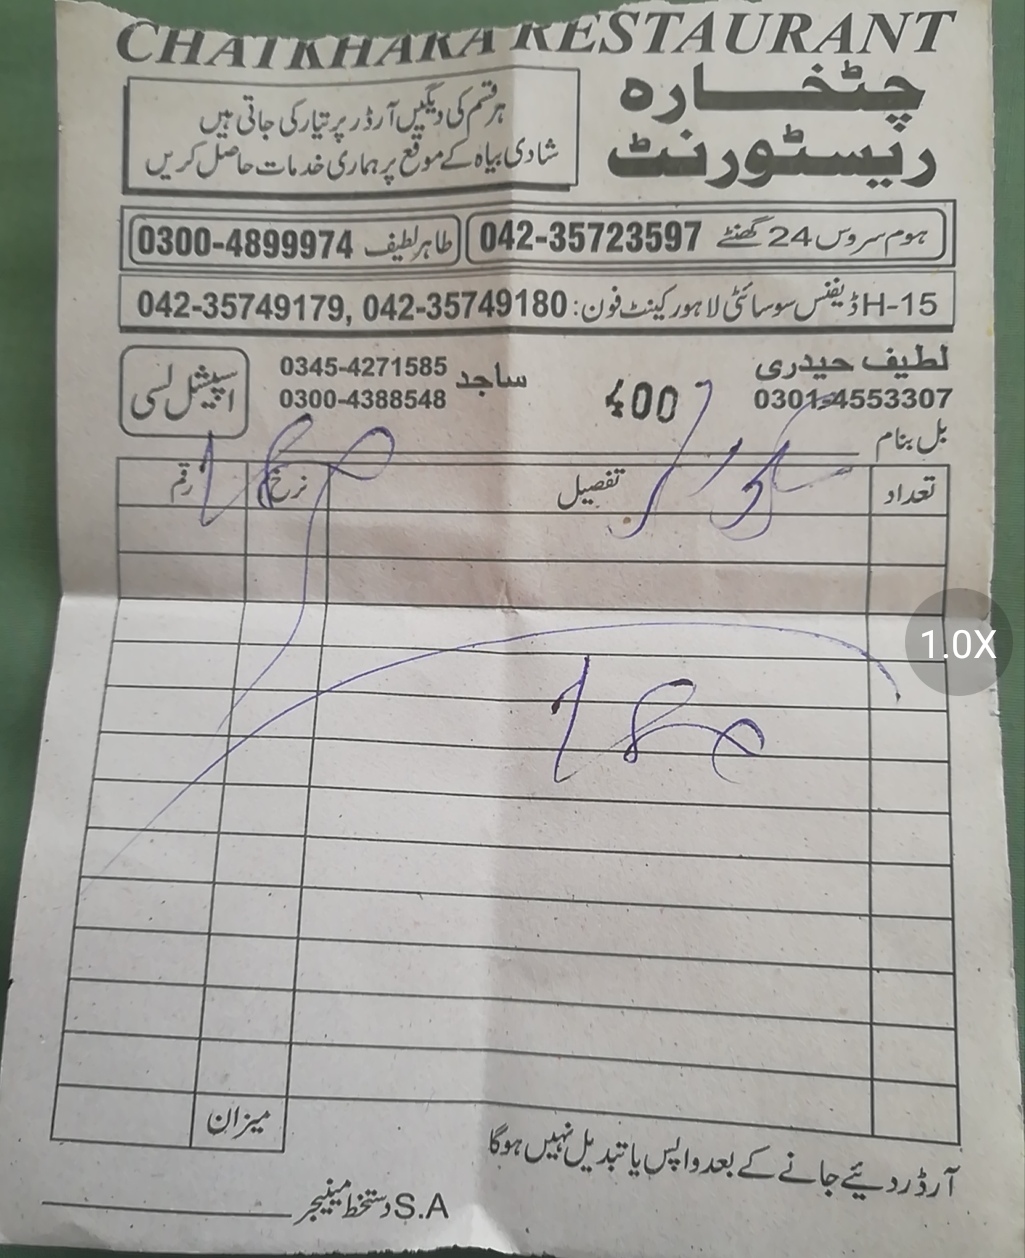 CHATKHARA RESTAURANT
چٹخارہ
ریسٹورنٹ
ہر قسم کی دیگیں آرڈر پر تیار کی جاتی ہیں
شادی بیاہ کے موقع پر ہماری خدمات حاصل کریں
ہوم سروس 24 گھنٹے 042-35723597
طاہر لطیف 0300-4899974
H-15 ڈیفنس سوسائٹی لاہور کینٹ فون: 042-35749179, 042-35749180
لطیف حیدری
0301-4553307
400
ساجد 0345-4271585
0300-4388548
اسپیشل لسی
بل بنام
تعداد تفصیل نرخ رقم
180
180
میزان
آرڈر دئیے جانے کے بعد واپس یا تبدیل نہیں ہوگا
S.A دستخط مینیجر
1.0X